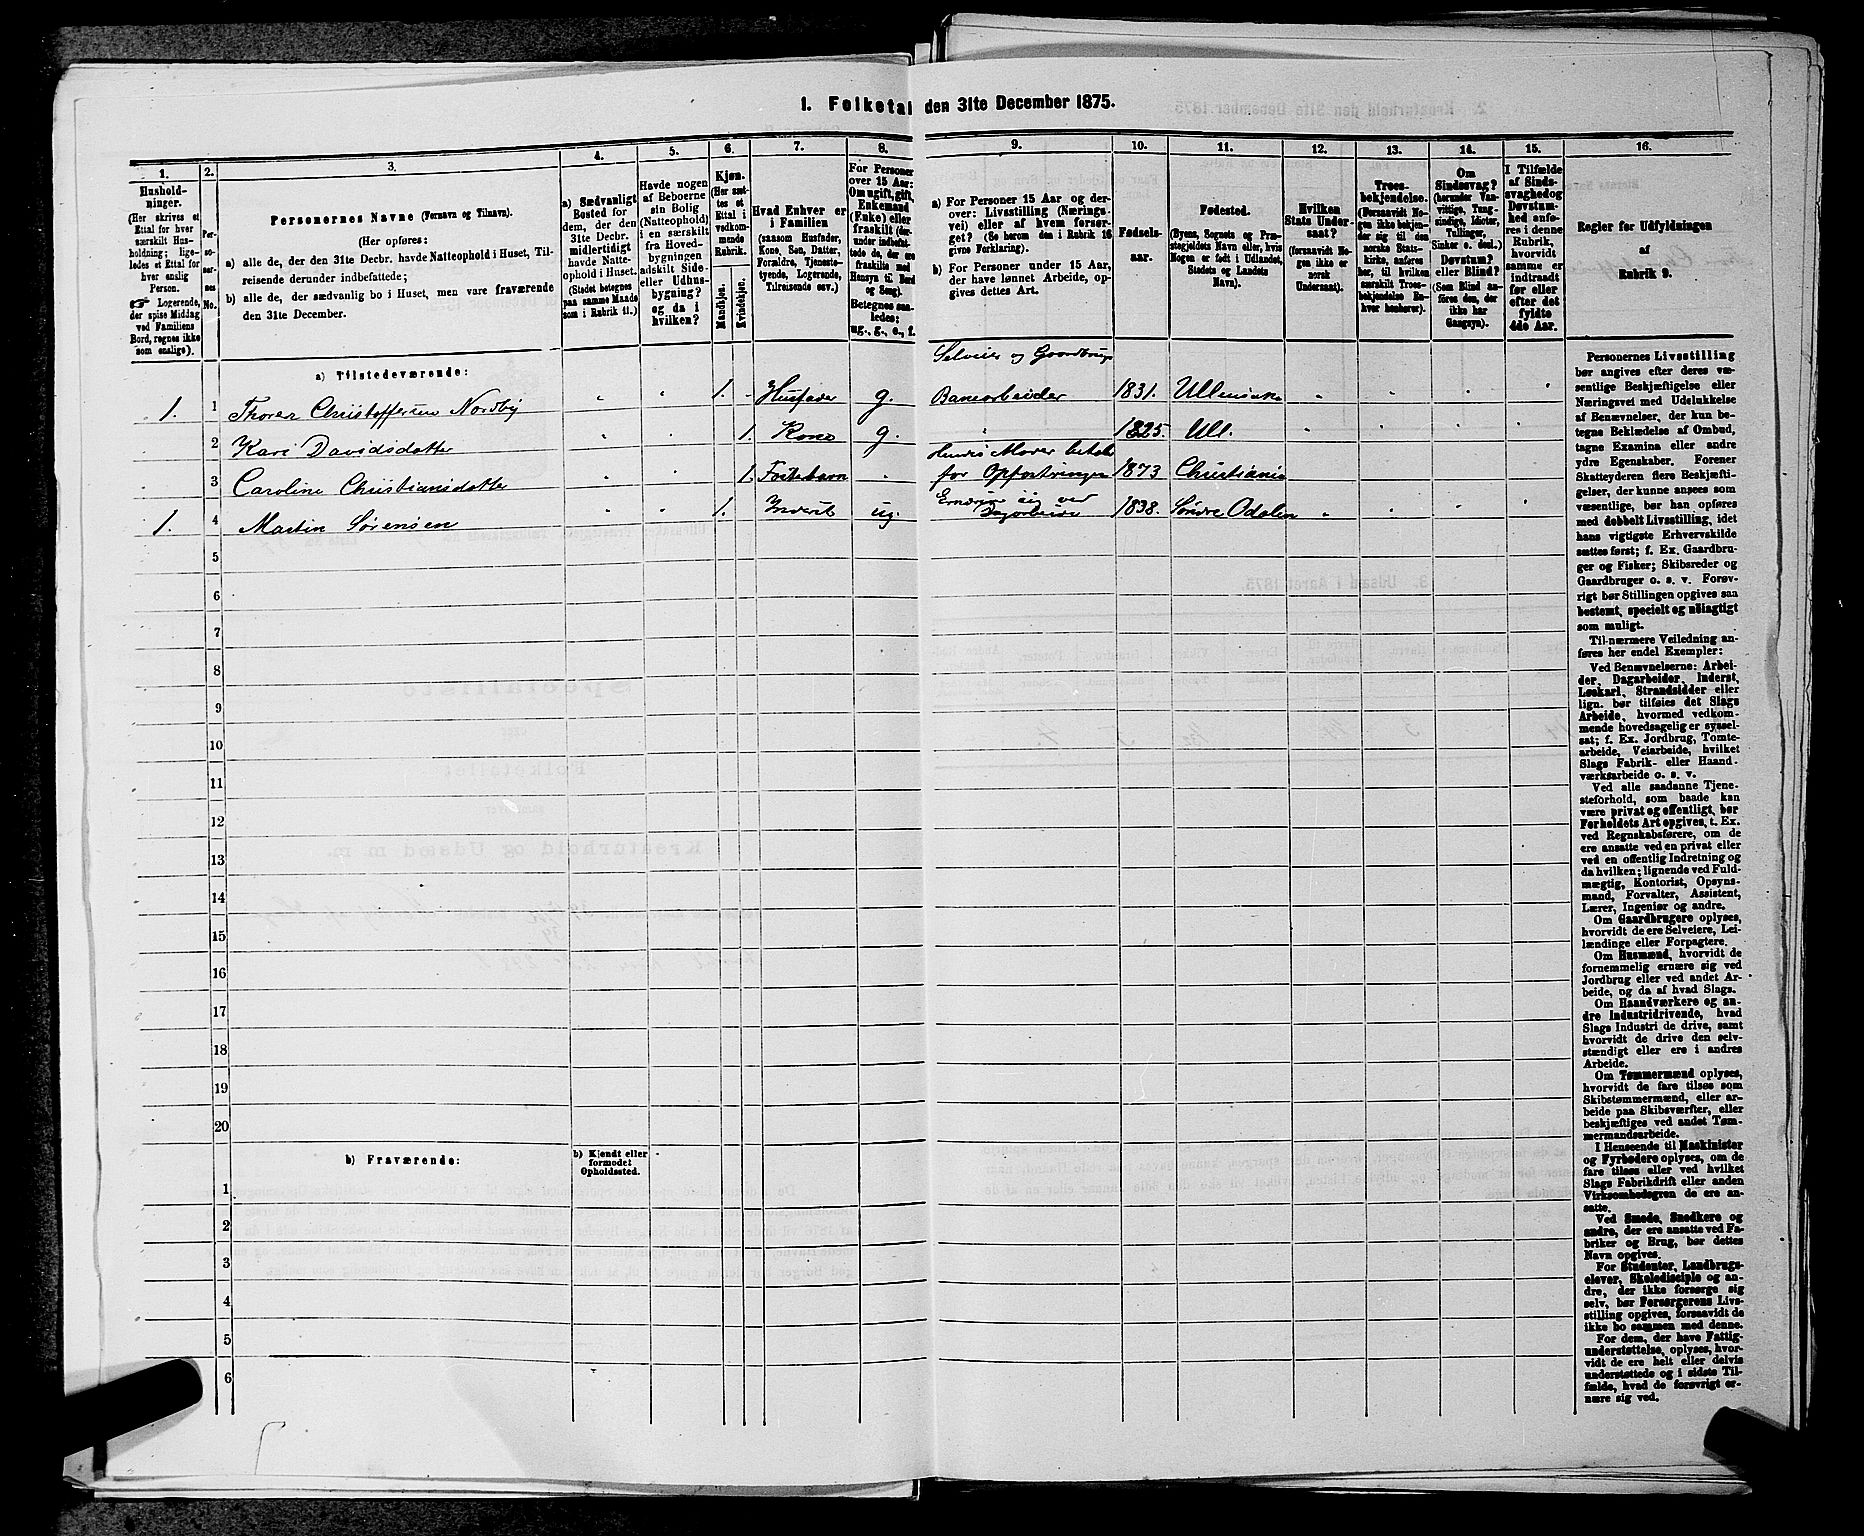 1. Folketal den 31te December 1875.
1. 2. 3. 4. 5. 6. 7. 8. 9. 10. 11. 12. 13. 14. 15. 16.
Hushold-
ninger.
(Her skrives et
Ettal for hver
særskilt Hus-
holdning; lige-
ledes et Ettal for
hver enslig
Person.
☞ Logerende,
der spise Middag
ved Familiens
Bord, regnes ikke
som enslige).
Per-
soner-
nes
No.
Personernes Navne (Fornavn og Tilnavn).
(Her opføres:
a) alle de, der den 31te Decbr. havde Natteophold i Huset, Til-
reisende derunder indbefattede;
b) alle de, der sædvanlig bo i Huset, men vare fraværende
den 31te December.
a) Sædvanligt
Bosted for
dem, der den
31te Decbr.
midlertidigt
havde Natte-
ophold i Huset.
(Stedet betegnes
paa samme Maade
som i Rubrik 11.)
Havde nogen
af Beboerne
sin Bolig
(Natteophold)
i en særskilt
fra Hoved-
bygningen
adskilt Side-
eller Udhus-
bygning?
og da i
hvilken?
Kjøn.
(Her sæt-
tes et
Ettal i
vedkom-
mende
Rubrik.
Mandkjøn.
Kvindekjøn.
Hvad Enhver er
i Familien
(saasom Husfader,
Kone, Søn, Datter,
Forældre, Tjeneste-
tyende, Logerende,
Tilreisende osv.)
For Personer
over 15 Aar:
Om ugift, gift,
Enkemand
(Enke) eller
fraskilt (der-
under indbefat-
tede de, der ere
fraskilte med
Hensyn til Bord
og Seng).
Betegnes saa-
ledes:
ug., g., e., f.
a) For Personer 15 Aar og der-
over: Livsstilling (Nærings-
vei) eller af hvem forsør-
get? (Se herom den i Rubrik 16
givne Forklaring).
b) For Personer under 15 Aar,
der have lønnet Arbeide, op-
gives dettes Art.
Fødsels-
aar.
Fødested.
(Byens, Sognets og Præ-
stegjeldets Navn eller, hvis
Nogen er født i Udlandet,
Stedets og Landets
Navn).
Hvilken
Stats Under-
saat?
(forsaavidt No-
gen ikke er
norsk
Undersaat).
Troes-
bekjendelse.
(Forsaavidt No-
gen ikke bekjen-
der sig til den
norske Stats-
kirke, anføres
her, til hvilken
særskilt Troes-
bekjendelse En-
hver henhører).
Om
Sindssvag?
(herunder Van-
vittige, Tung-
sindige, Idioter,
Tullinger,
Sinker o. desl.)
Døvstum?
eller Blind?
(Som Blind an-
føres den, der
ikke har
Gangsyn).
I Tilfælde
af Sinds-
svaghed og
Døvstum-
hed anfø-
res i denne
Rubrik,
hvorvidt
samme er
indtraadt
før eller
efter det
fyldte
4de Aar.
Regler for Udfyldningen
af
Rubrik 9.
a) Tilstedeværende:
Selveier og Gaardbruger
1. 1 Thorer Christoffersen Nordby " " 1. - Husfader g. Banearbeider 1831. Ullensaker
2 Kari Davidsdatter " " 1. Kone g. " 1825. Ull.
3 Caroline Christiansdatter " " 1. Fosterbarn - Hendes Moder betaler for Opfostringen 1873 Christiania
1. 4 Martin Sørensen " " 1. Inderst ug. Ernærer sig ved Dagarbeide 1838. Søndre Odalen
5
6
7
8
9
10
11
12
13
14
15
16
17
18
19
20
b) Fraværende:
b) Kjendt eller
formodet
Opholdssted.
1
2
3
4
5
6
Personernes Livsstilling
bør angives efter deres væ-
sentlige Beskjæftigelse eller
Næringsvei med Udelukkelse
af Benævnelser, der kun be-
tegne Beklædelse af Ombud,
tagne Examina eller andre
ydre Egenskaber. Forener
Skatteyderen flere Beskjæfti-
gelser, der kunne ansees som
væsentlige, bør han opføres
med dobbelt Livsstilling, idet
hans vigtigste Erhvervskilde
sættes først; f. Ex. Gaardbru-
ger og Fisker; Skibsreder og
Gaardbruger o. s. v. Forøv-
rigt bør Stillingen opgives saa
bestemt, specielt og nøiagtigt
som muligt.
Til nærmere Veiledning an-
føres her endel Exempler:
Ved Benævnelserne: Arbei-
der, Dagarbeider, Inderst,
Løskarl, Strandsidder eller
lign. bør tilføies det Slags
Arbeide, hvormed vedkom-
mende hovedsagelig er syssel-
sat; f. Ex. Jordbrug, Tomte-
arbeide, Veiarbeide, hvilket
Slags Fabrik- eller Haand-
værksarbeide o. s. v.
Ved alle saadanne Tjene-
steforhold, som baade kan
være privat og offentligt, bør
Forholdets Art opgives, t. Ex.
ved Regnskabsførere, om de
ere ansatte ved en privat eller
ved en offentlig Indretning og
da hvilken; lignende ved Fuld-
mægtig, Kontorist, Opsyns-
mand, Forvalter, Assistent,
Lærer, Ingeniør og andre.
Om Gaardbrugere oplyses,
hvorvidt de ere Selveiere, Lei-
lændinge eller Forpagtere.
Om Husmænd, hvorvidt de
fornemmelig ernære sig ved
Jordbrug eller ved andet Ar-
beide, og da af hvad Slags.
Om Haandværkere og an-
dre Industridrivende, hvad
Slags Industri de drive, samt
hvorvidt de drive den selv-
stændigt eller ere i andres
Arbeide.
Om Tømmermænd oplyses,
hvorvidt de fare tilsøs som
Skibstømmermænd, eller ar-
beide paa Skibsværfter, eller
beskjæftiges ved andet Tøm-
mermandsarbeide.
I Henseende til Maskinister
og Fyrbødere oplyses, om de
fare tilsøs eller ved hvilket
Slags Fabrikdrift eller anden
Virksomhedsgren de ere an-
satte.
Ved Smede, Snedkere og
andre, der ere ansatte ved Fa-
briker og Brug, bør dettes
Navn opgives.
For Studenter, Landbrugs-
elever, Skoledisciple og an-
dre, der ikke forsørge sig
selv, bør Forsørgerens Livs-
stilling opgives, forsaavidt de
ikke bo sammen med denne.
For dem, der have Fattig-
understøttelse, oplyses, hvor-
vidt de ere helt eller delvis
understøttede og i sidste Til-
fælde, hvad de forøvrigt er-
nære sig ved.